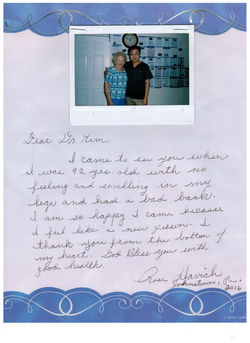 Dear Dr. Kim,
I came to see you when
I was 92 yrs. old with no
feeling and swelling in my
legs and had a bad back.
I am so happy I came because
I feel like a new person. I
thank you from the bottom of
my heart. God Bless you with
good health.
Rose
Johnstown, Pa.
2016